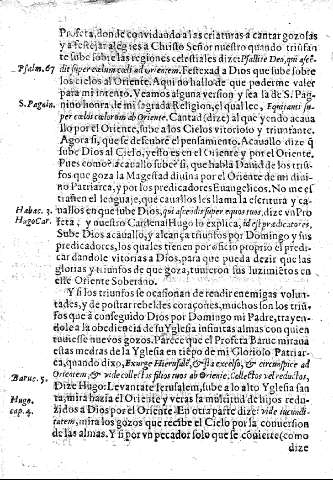 Profeta, donde conuidando a las criaturas a cantar gozosas
y a festejar alegres a Christo Señor nuestro quando triufan
te sube sobre las regiones celestiales dize: Psallite Deo, qui ascē-
Psalm. 67
dit super cœlum cœli ad orientem. Festexad a Dios que sube sobre
los cielos al Oriente. Aqui no hallo de que poderme valer
para mi intento. Veamos alguna version y sea la de S. Pag-
S. Pagnin.
nino honra de mi sagrada Religion, el qual lee, Equitanti su-
per cœlos cœlorum ab Oriente. Cantad (dize) al que yendo acaua
llo por el Oriente, sube a los Cielos vitorioso y triunfante.
Agora si, que se descubre el pensamiento. Acauallo dize q̄
sube Dios al Cielo, y esto es en el Oriente y por el Oriente.
Pues como? acauallo sube? si, que habla Dauid de los triũ-
fos que goza la Magestad diuina por el Oriente de mi diui-
no Patriarca, y por los predicadores Euangelicos. No me es
trañen el lenguaje, que cauallos les llama la escritura y ca-
Habac. 3.
uallos en que sube Dios, qui ascendis super equos tuos, dize vn Pro
Hugo Car.
feta, y nuestro Cardenal Hugo lo explica, id est prædicatores,
Sube Dios acauallo, y alcança triunfos por Domingo y sus
predicadores, los quales tienen por oficio proprio el predi-
car dandole vitorias a Dios, para que pueda dezir que las
glorias y triunfos de que goza, tuuieron sus luzimiẽtos en
este Oriente Soberano.
Y si los triunfos se ocasionan de rendir enemigas volun-
tades, y de postrar rebeldes coraçones, muchos son los triũ-
fos que à conseguido Dios por Domingo mi Padre, trayen-
dole a la obediencia de su Yglesia infinitas almas con quien
tuuiesse nuevos gozos. Parece que el Profeta Baruc miraua
estas medras de la Yglesia en tiẽpo de mi Glorioso Patriar-
ca, quando dixo, Exurge Hierusalē, & sta excelso, & circunspice ad
Baruc. 5.
Orientem, & vide collectos filios tuos ab Oriente. Collectos vel reductos,
Hugo.
Dize Hugo: Leuantate Ierusalem, sube a lo alto Yglesia san
cap. 4.
ta, mira hazia el Oriente y veras la multitud de hijos redu-
zidos a Dios por el Oriente. En otra parte dize: vide iucundi-
tatem, mira los gozos que recibe el Cielo por la conuersion
de las almas. Y si por vn pecador solo que se cõuierte (como
dize